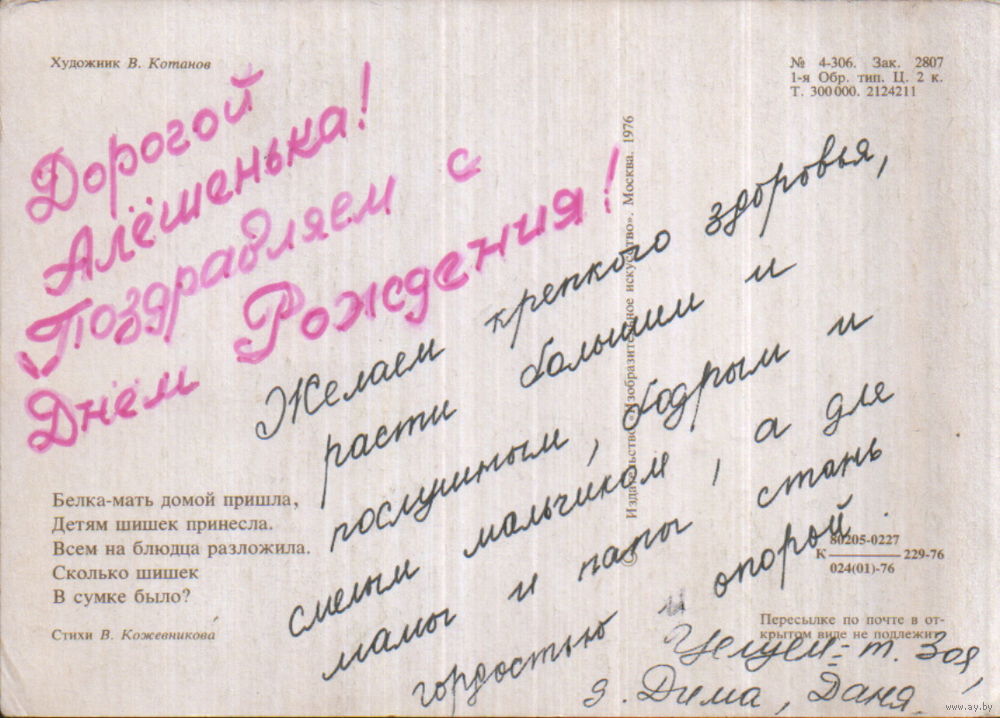 Художник В. Котанов
№ 4-306. Зак. 2807
1-я Обр. тип. Ц. 2 к.
Т. 300 000. 2124211
Дорогой
Алёшенька!
Поздравляем с
Днём Рождения!
Желаем крепкого здоровья,
расти большим и
послушным, бодрым и
смелым мальчиком, а для
мамы и папы стань
гордостью и опорой.
Целуем: т. Зоя,
д. Дима, Даня.
Белка-мать домой пришла,
Детям шишек принесла.
Всем на блюдца разложила.
Сколько шишек
В сумке было?
Стихи В. Кожевникова
© Издательство «Изобразительное искусство». Москва. 1976
К 80205-0227 229-76
024(01)-76
Пересылке по почте в от-
крытом виде не подлежит
www.ay.by